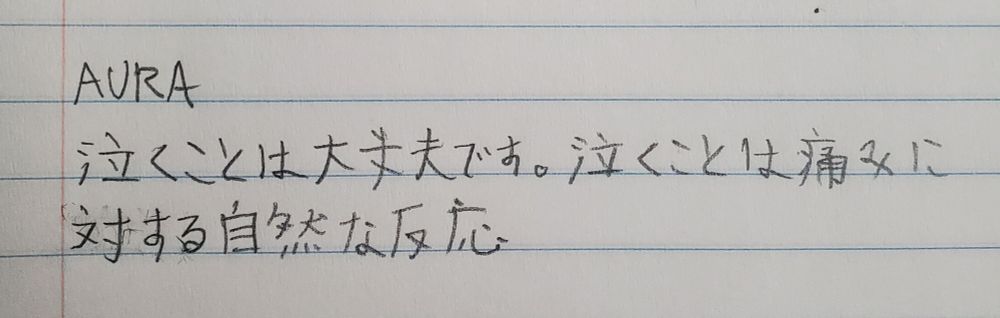 AURA
泣くことは大丈夫です。泣くことは痛みに
対する自然な反応